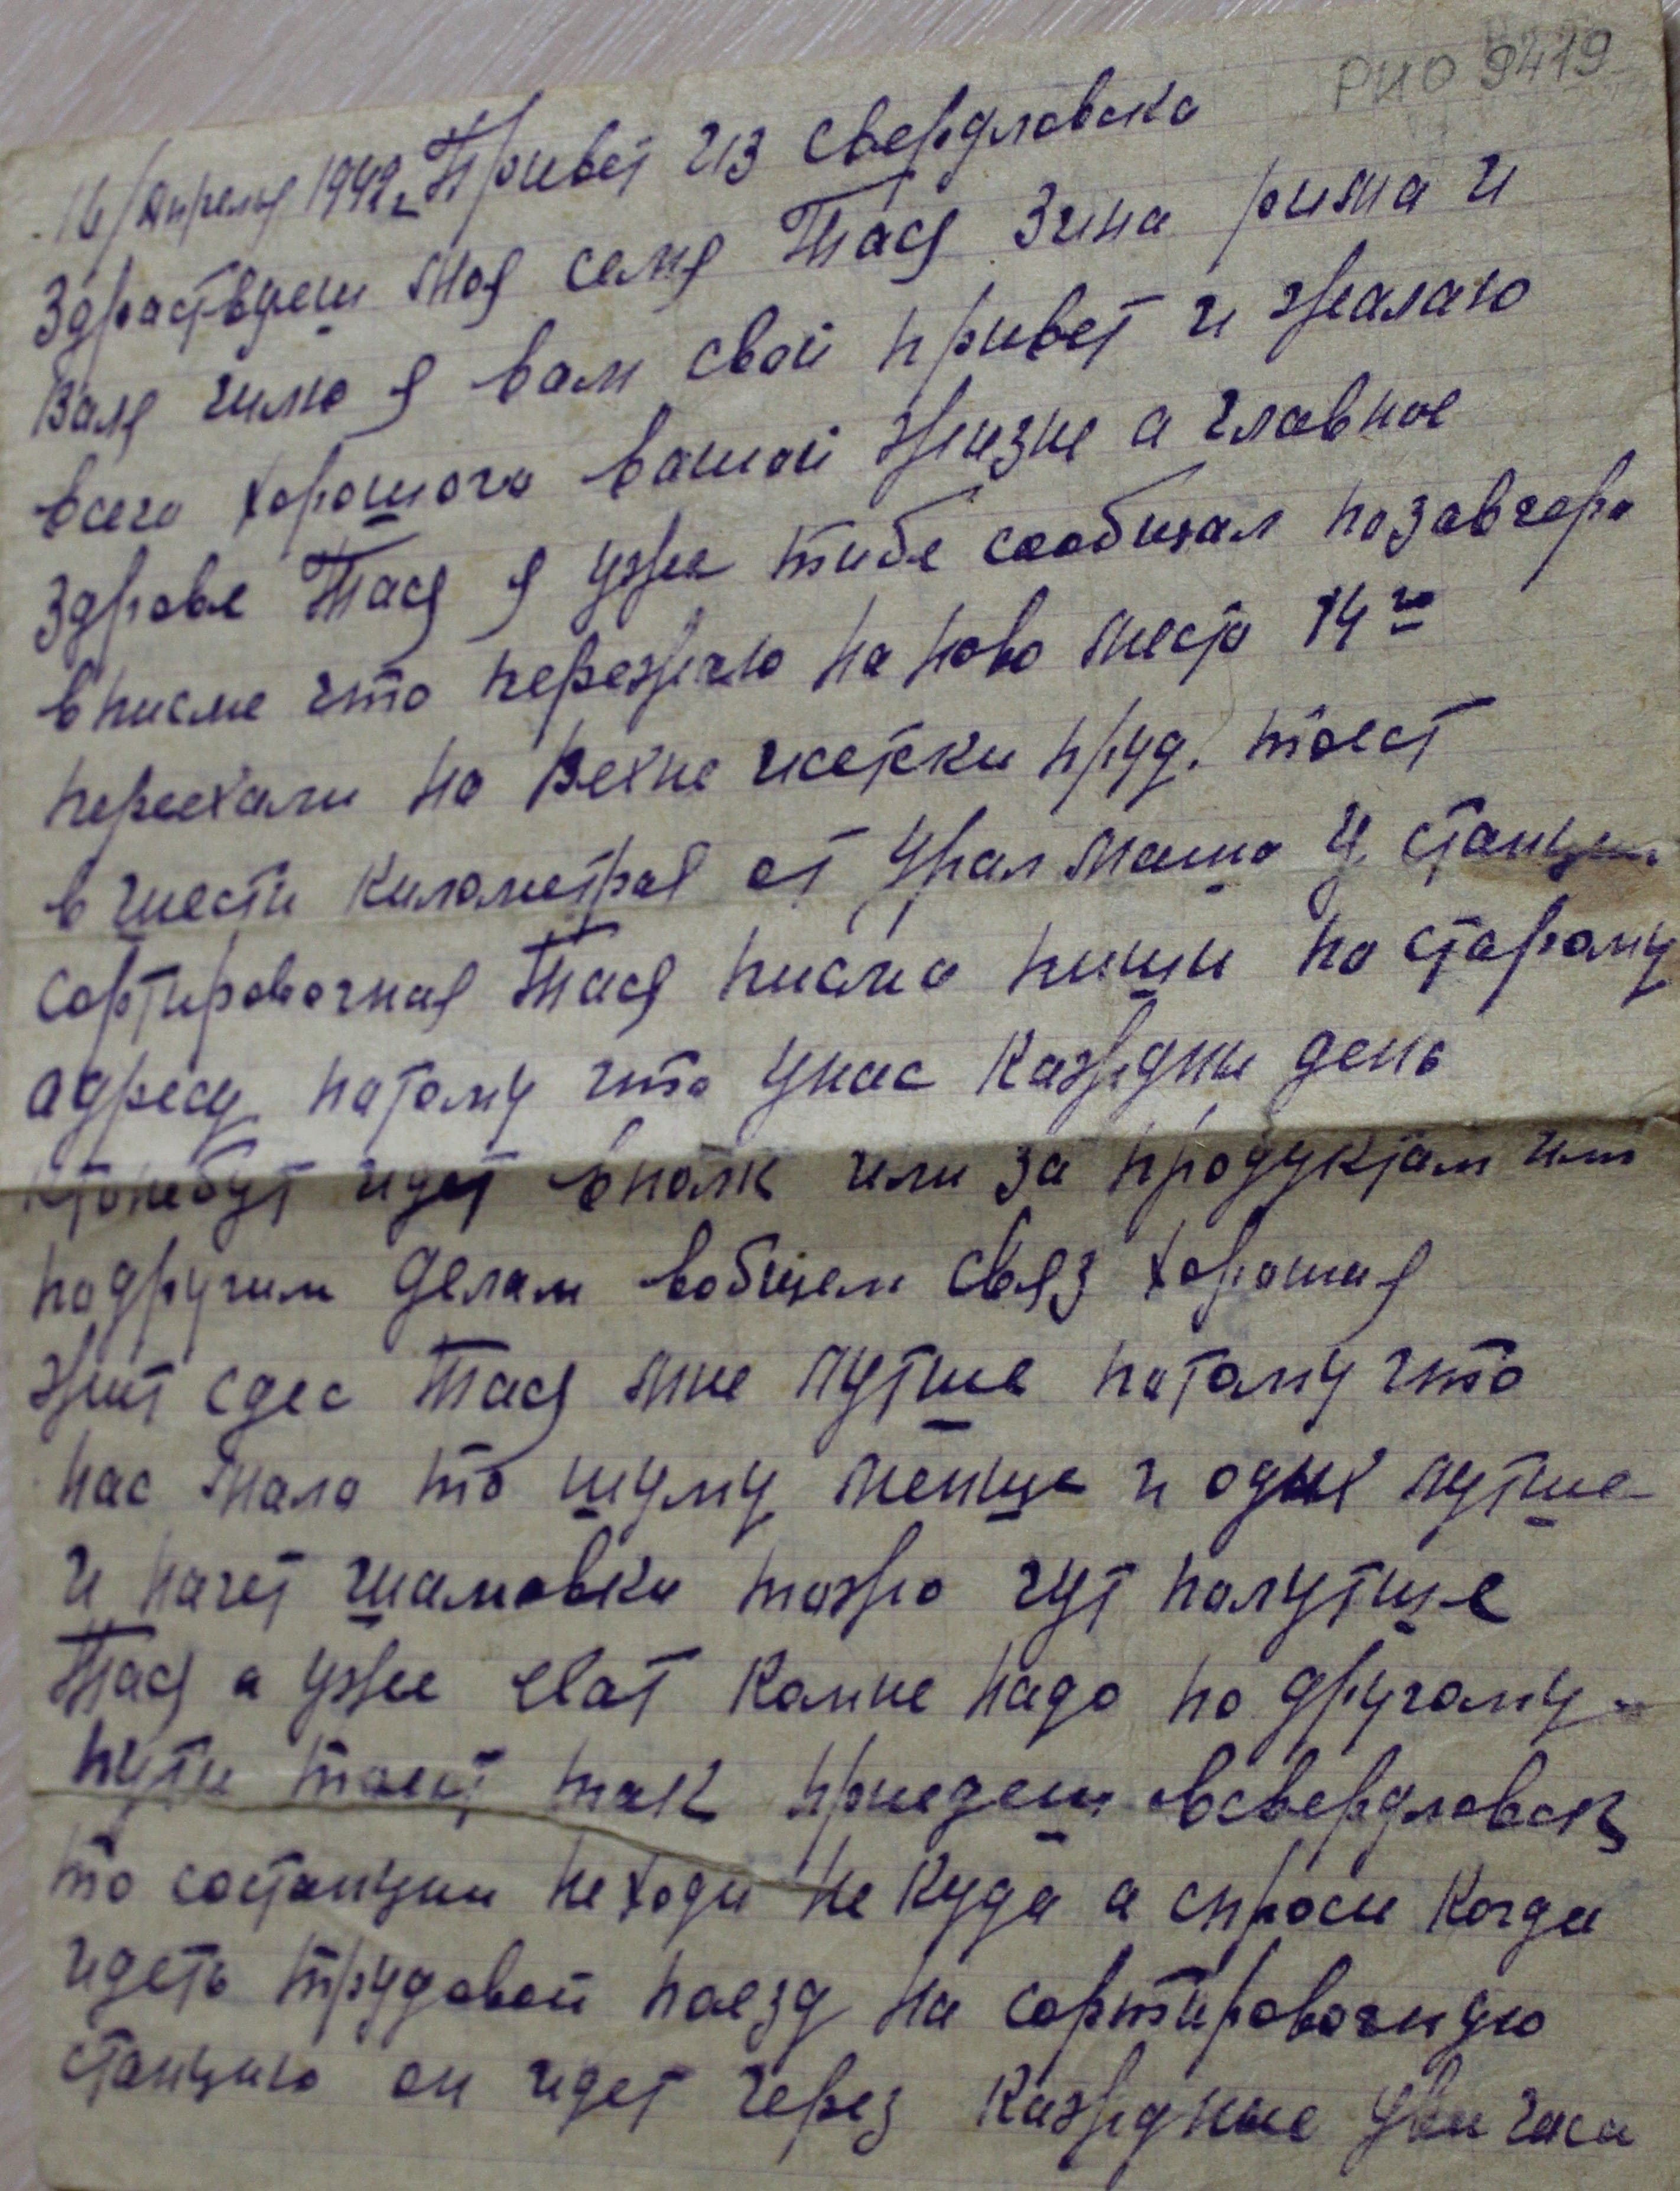 РИО 9419
16/апреля 1942г Привет из свердловска
Здраствуеш моя семя Тася Зина рима и
Валя шлю я вам свой привет и жалаю
всего хорошого вашой жизне а главное
здрове Тася я уже тибе сообщал позавчера
вписме что перезжаю на ново место 14го
переехали на Вехне исетски пруд. тоест
в шести километрая от Урал маша у станции
сортировочная Тася писма пиши по старому
адресу потому что унас каждни день
ктонебут идет вполк или за продуктам или
подругим делам вобщем связ хорошая
жит сдес Тася мне лутше потому что
нас мало то шуму менше и одых лутше
и начет шамовки тожо чут полутше
Тася а уже ехат комне надо по другому
пути тоест так приедеш всвердловск
то состанции не ходи не куда а спроси когда
идеть трудовой поезд на сортировочную
станцию он идет через каждние два часа